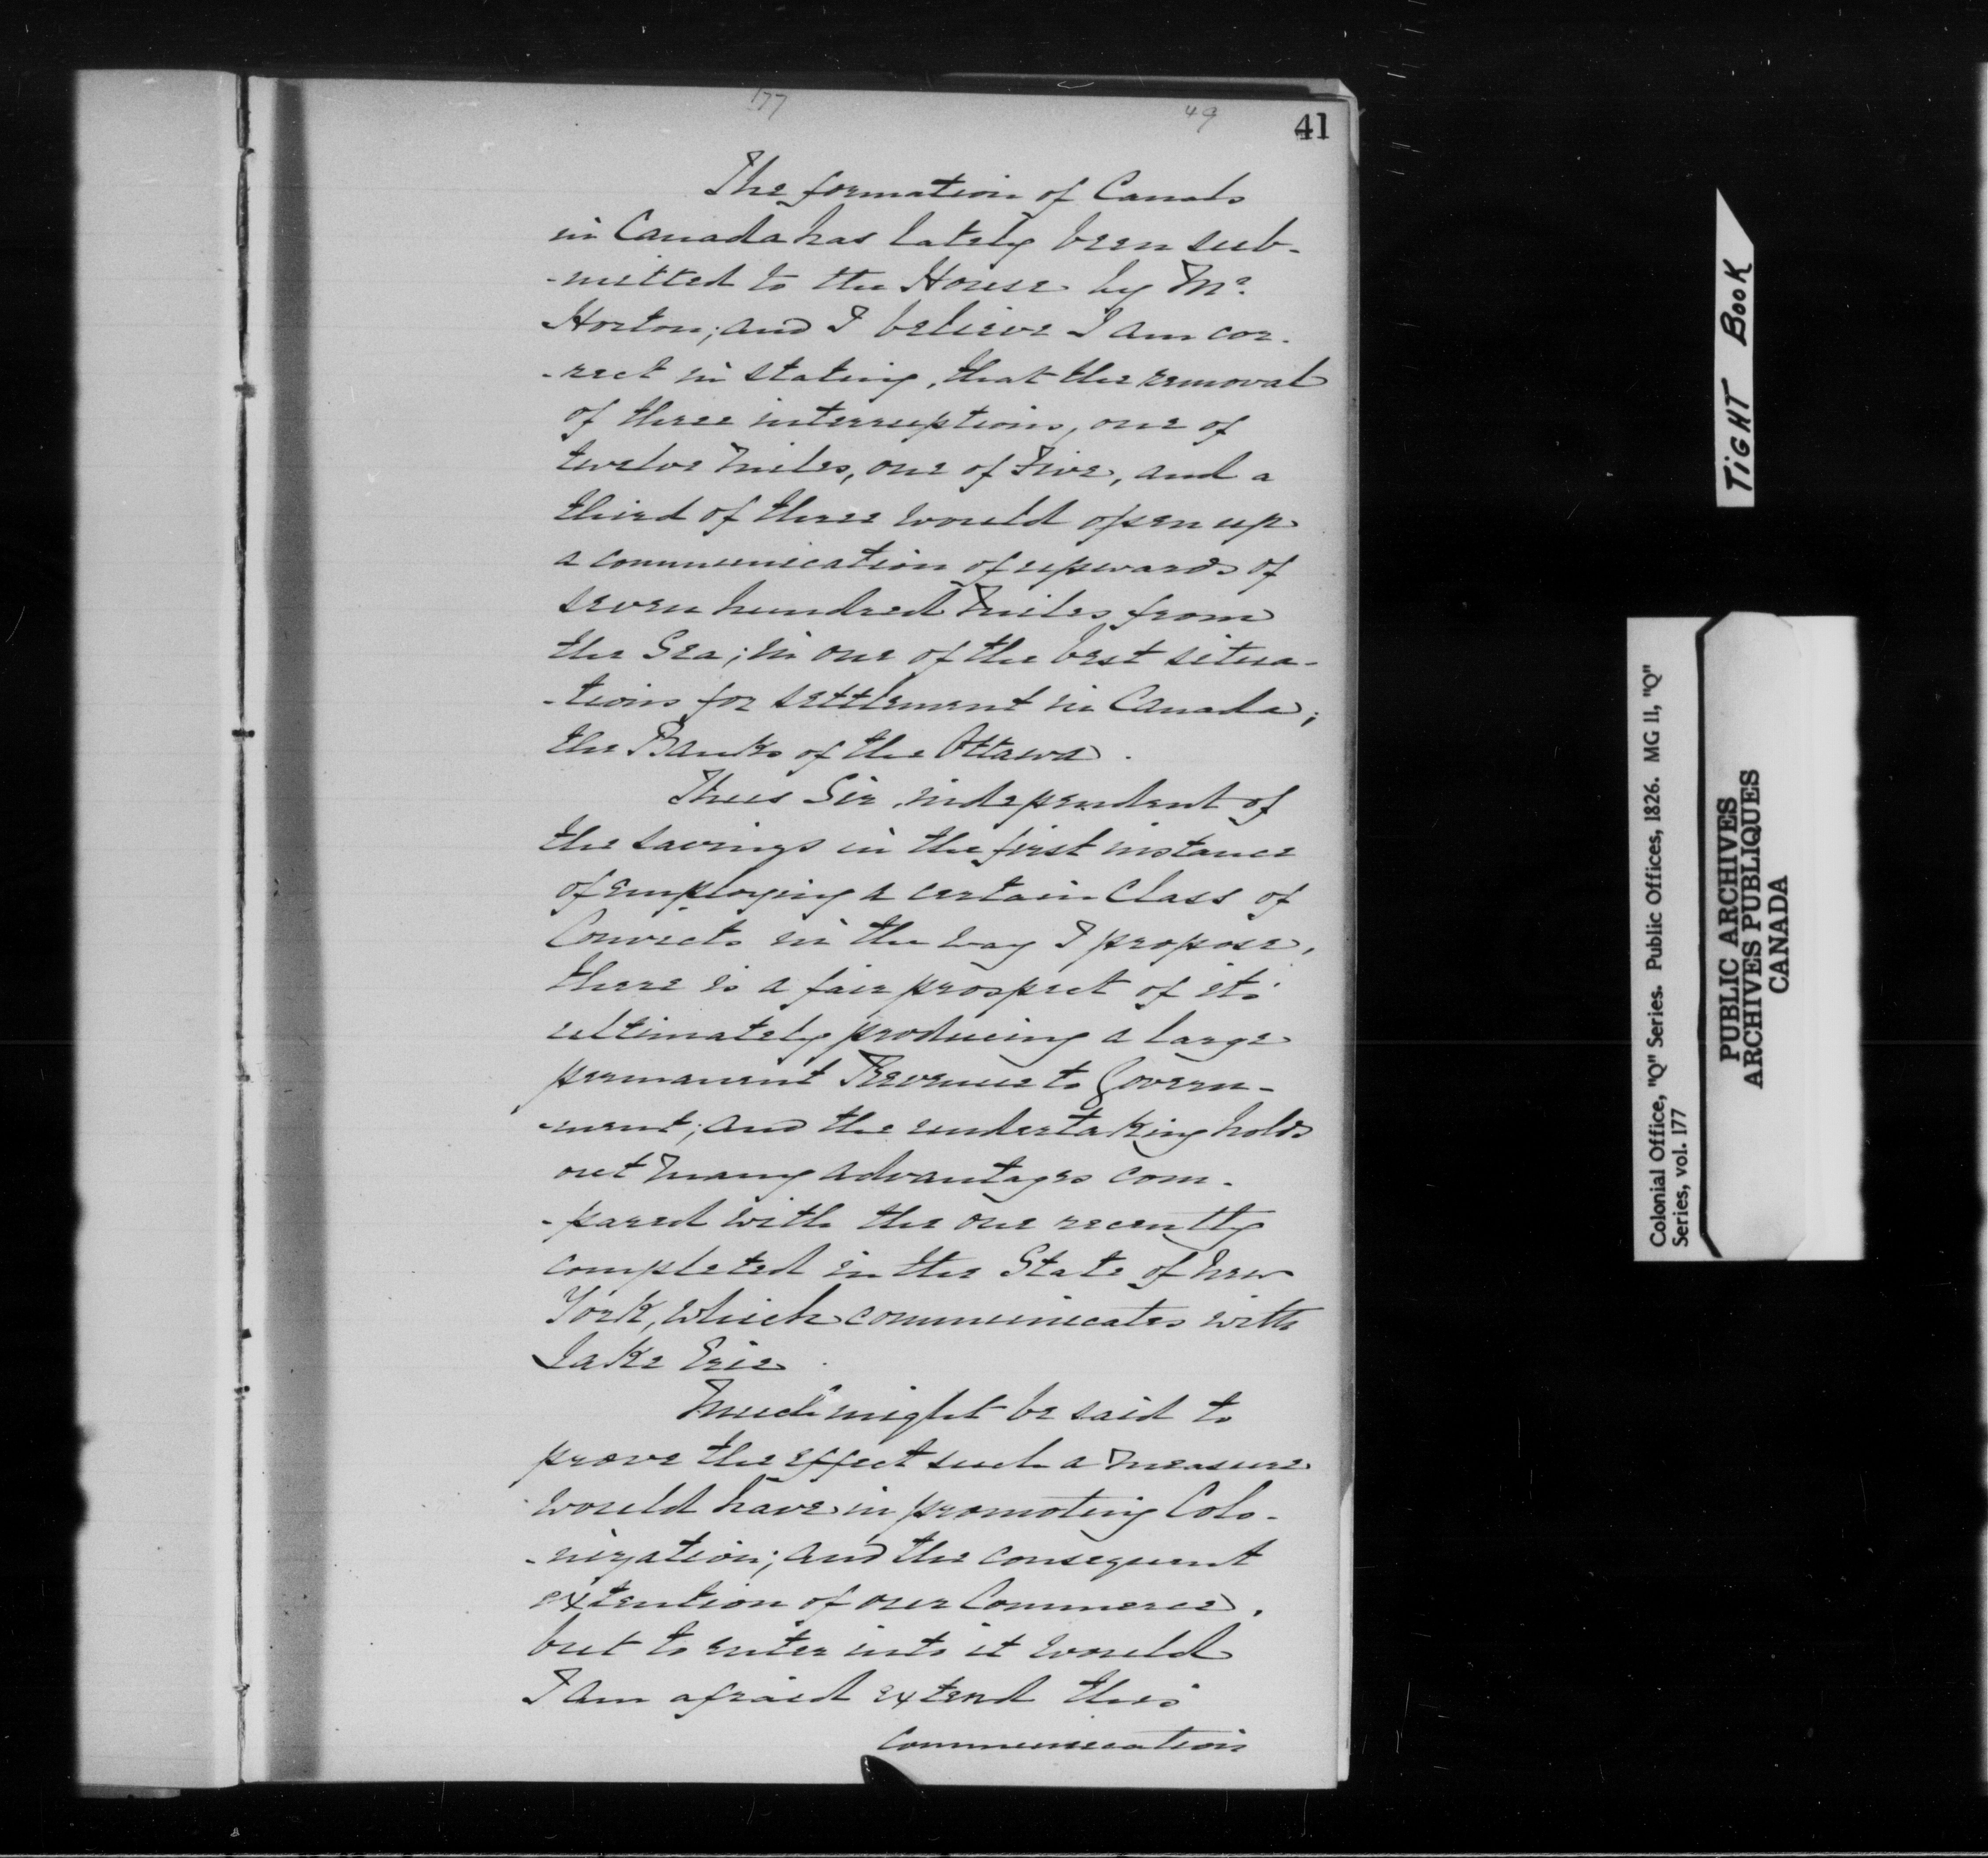 177
49
41
The formation of Canals
in Canada has lately been sub-
-mitted to the House by Mr.
Horton; and I believe I am cor-
-rect in stating, that the removal
of three interruptions, one of
twelve Miles, one of Five, and a
third of three would open up
a communication of upwards of
seven hundred Miles from
the Sea; in one of the best situa-
-tions for settlement in Canada;
the Banks of the Ottawa.
Thus Sir, independent of
the savings in the first instance
of employing a certain Class of
Convicts in the way I propose,
there is a fair prospect of its
ultimately producing a large
permanent Revenue to Govern-
-ment; and the undertaking holds
out many advantages com-
-pared with the one recently
completed in the State of New
York, which communicates with
Lake Erie.
Much might be said to
prove the effect such a measure
would have in promoting Colo-
-nization; and the consequent
extention of our Commerce,
but to enter into it would
I am afraid extend this
communication
TIGHT BOOK
Colonial Office, "Q" Series. Public Offices, 1826. MG 11, "Q"
Series, vol. 177
PUBLIC ARCHIVES
ARCHIVES PUBLIQUES
CANADA